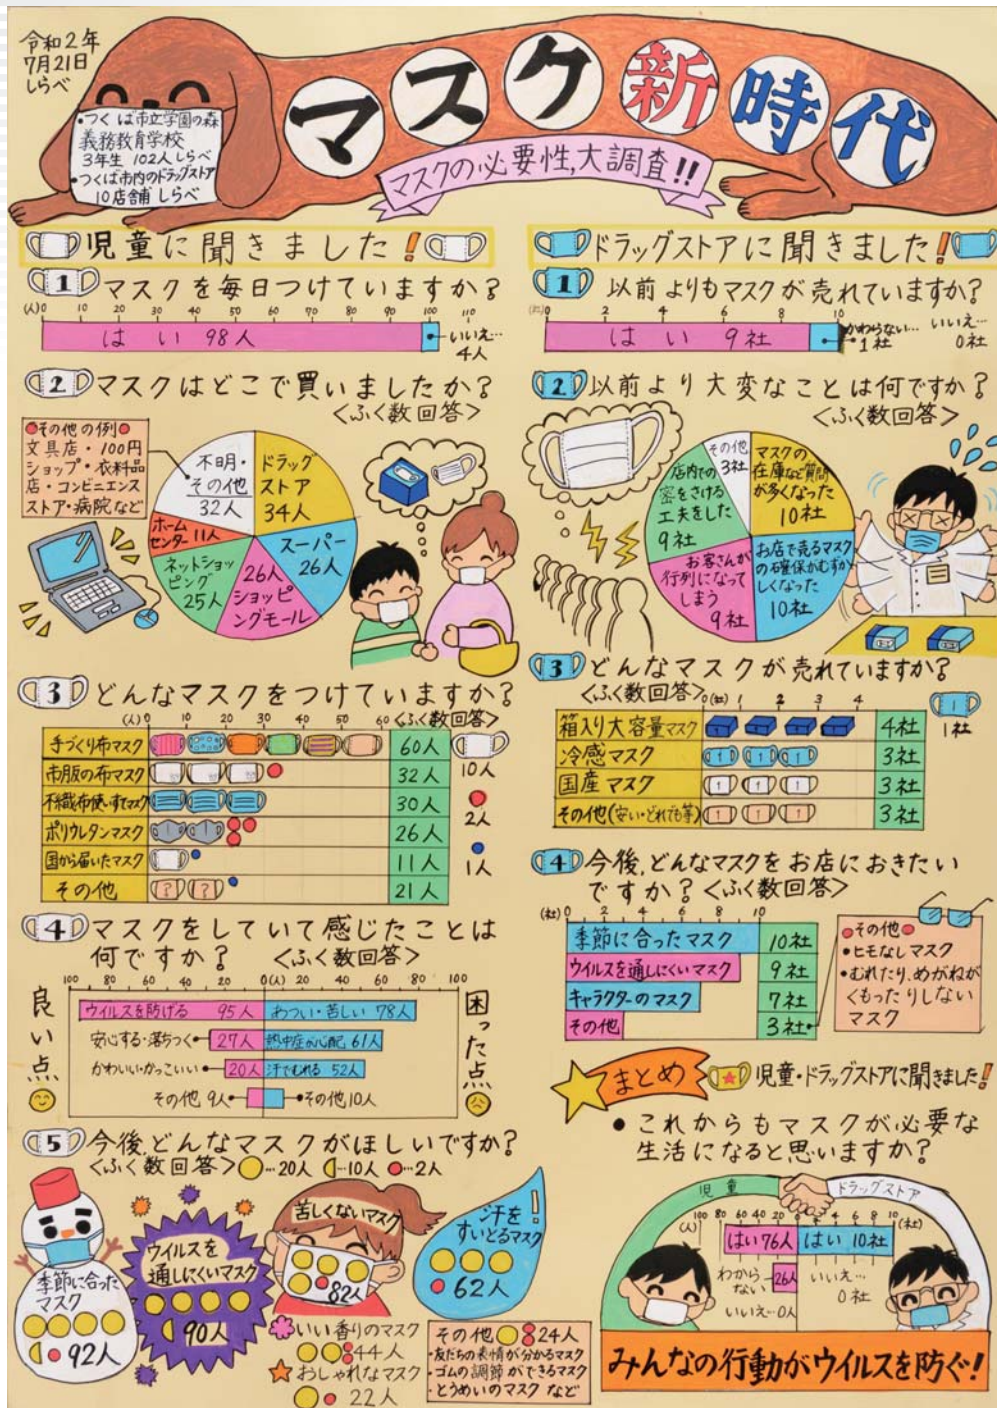 令和2年
7月21日
しらべ
マスク新時代
マスクの必要性,大調査!!
・つくば市立学園の森
義務教育学校
3年生 102人しらべ
・つくば市内のドラッグストア
10店舗しらべ
児童に聞きました!
1 マスクを毎日つけていますか?
(人) 0 10 20 30 40 50 60 70 80 90 100 110
はい 98人
いいえ…
4人
2 マスクはどこで買いましたか?
<ふく数回答>
その他の例
文具店・100円
ショップ・衣料品
店・コンビニエンス
ストア・病院など
不明・
その他
32人
ドラッグ
ストア
34人
スーパー
26人
26人
ショッピ
ングモール
ネットショッ
ピング
25人
ホーム
センター 11人
3 どんなマスクをつけていますか?
<ふく数回答>
(人) 0 10 20 30 40 50 60
手づくり布マスク 60人
市販の布マスク 32人
不織布使いすてマスク 30人
ポリウレタンマスク 26人
国から届いたマスク 11人
その他 21人
10人
2人
1人
4 マスクをしていて感じたことは
何ですか? <ふく数回答>
100 80 60 40 20 0(人) 20 40 60 80 100
良い点
困った点
ウイルスを防げる 95人 あつい・苦しい 78人
安心する・落ちつく 27人 熱中症が心配 61人
かわいい・かっこいい 20人 汗でむれる 52人
その他 9人 その他 10人
5 今後,どんなマスクがほしいですか?
<ふく数回答> …20人 …10人 …2人
季節に合った
マスク
92人
ウイルスを
通しにくいマスク
90人
苦しくないマスク
82人
汗を
すいとるマスク
!
62人
いい香りのマスク
44人
おしゃれなマスク
22人
その他 24人
・友だちの表情が分かるマスク
・ゴムの調節ができるマスク
・とうめいのマスク など
ドラッグストアに聞きました!
1 以前よりもマスクが売れていますか?
(社) 0 2 4 6 8 10
はい 9社
かわらない…
1社
いいえ…
0社
2 以前より大変なことは何ですか?
<ふく数回答>
その他
3社
マスクの
在庫など質問
が多くなった
10社
お店で売るマスク
の確保がむずか
しくなった
10社
お客さんが
行列になって
しまう
9社
店内での
密をさける
工夫をした
9社
3 どんなマスクが売れていますか?
<ふく数回答>
0(社) 1 2 3 4
1社
箱入り大容量マスク 4社
冷感マスク 3社
国産マスク 3社
その他(安い・どれでも等) 3社
4 今後,どんなマスクをお店におきたい
ですか? <ふく数回答>
(社) 0 2 4 6 8 10
季節に合ったマスク 10社
ウイルスを通しにくいマスク 9社
キャラクターのマスク 7社
その他 3社
その他
・ヒモなしマスク
・むれたり,めがねが
くもったりしない
マスク
まとめ 児童・ドラッグストアに聞きました!
・これからもマスクが必要な
生活になると思いますか?
児童 ドラッグストア
(人) 100 80 60 40 20 0 2 4 6 8 10 (社)
はい 76人 はい 10社
わから
ない 26人
いいえ…
0社
いいえ…0人
みんなの行動がウイルスを防ぐ!